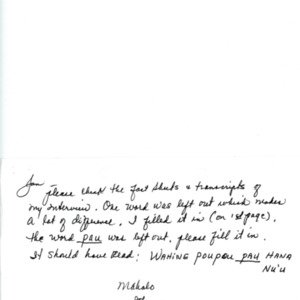 Jan
please check the fact sheets & transcripts of
my interview. One word was left out which makes
a lot of difference. I filled it in (on 1st page).
the word pau was left out, please fill it in.
It should have read: WAHINE POUPOU PAU HANA
NU'U
Mahalo